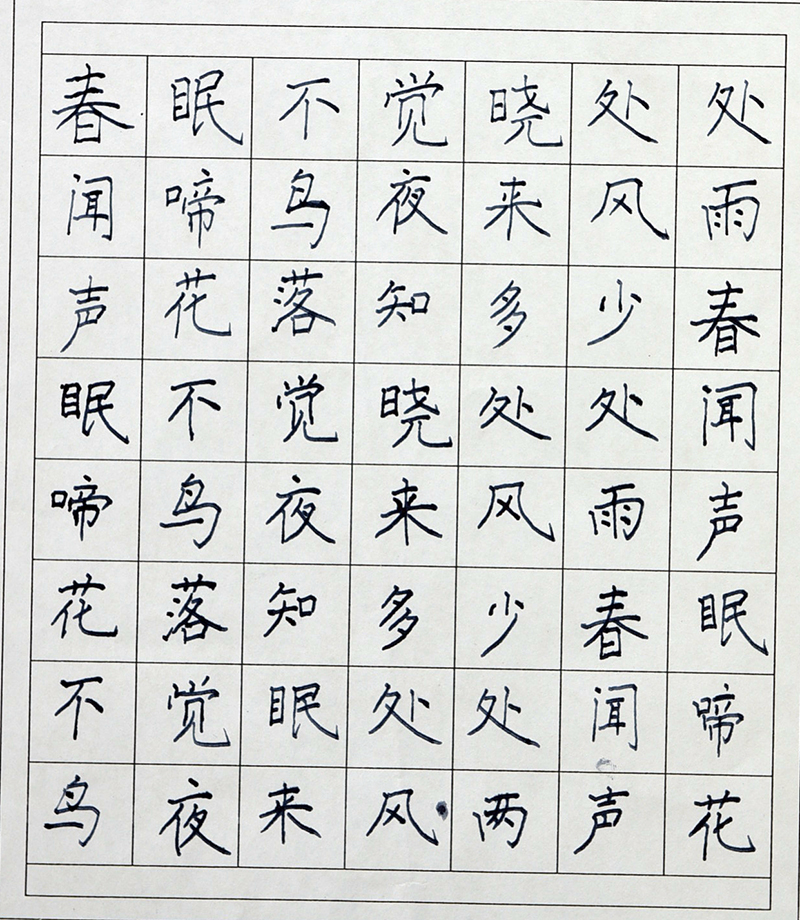 春眠不觉晓处处
闻啼鸟夜来风雨
声花落知多少春
眠不觉晓处处闻
啼鸟夜来风雨声
花落知多少春眠
不觉眠处处闻啼
鸟夜来风两声花